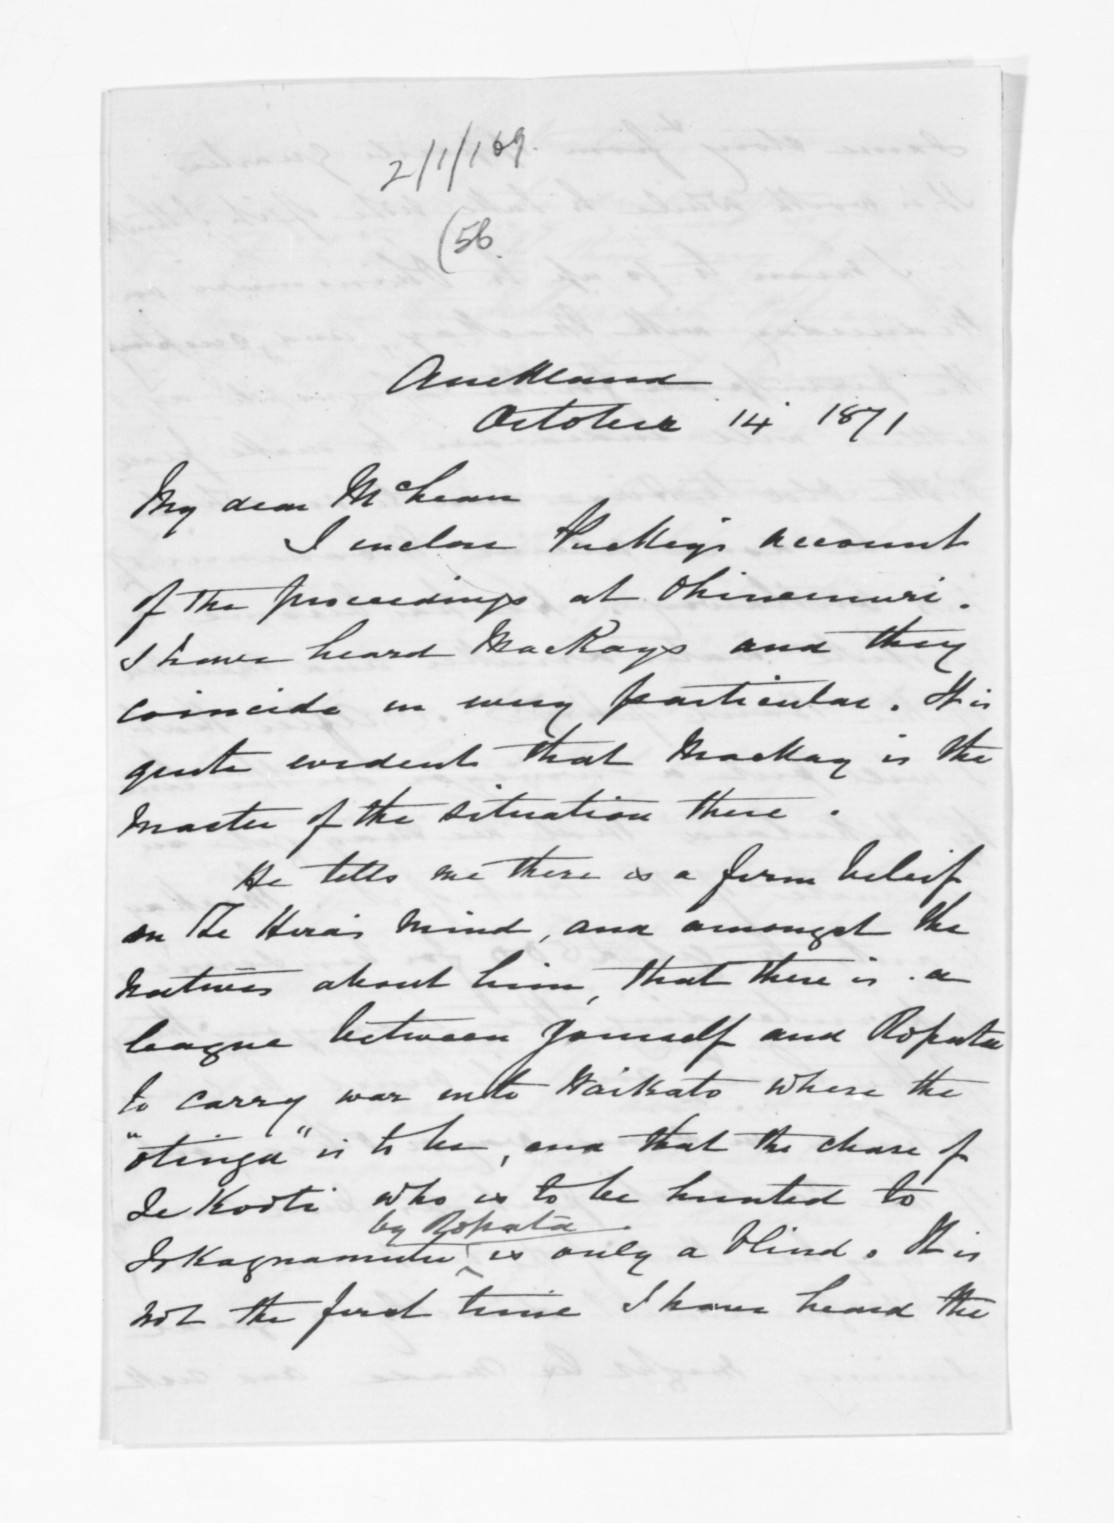 2/1/169.
(56.
Auckland
October 14 1871
My dear McLean
I enclose Puckey's account
of the proceedings at Ohinemuri.
I have heard Mackays and they
coincide in every particular. It is
quite evident that Mackay is the
Master of the situation there.
He tells me there is a firm beleif
in Te Hira's mind, and amongst the
Natives about him, that there is a
league between yourself and Ropata
to carry war into Waikato where the
"otinga" is to be, and that the chase of
Te Kooti who is to be hunted to
by Ropata
is only a blind. It is
not the first time I have heard the